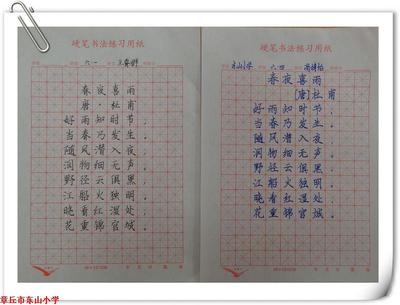 硬笔书法练习用纸
六一
春夜喜雨
唐·杜甫
好雨知时节,
当春乃发生。
随风潜入夜,
润物细无声。
野径云俱黑,
江船火独明。
晓看红湿处,
花重锦官城。
硬笔书法练习用纸
东山小学 六四
春夜喜雨
(唐)杜甫
好雨知时节,
当春乃发生。
随风潜入夜,
润物细无声。
野径云俱黑,
江船火独明。
晓看红湿处,
花重锦官城。
章丘市东山小学